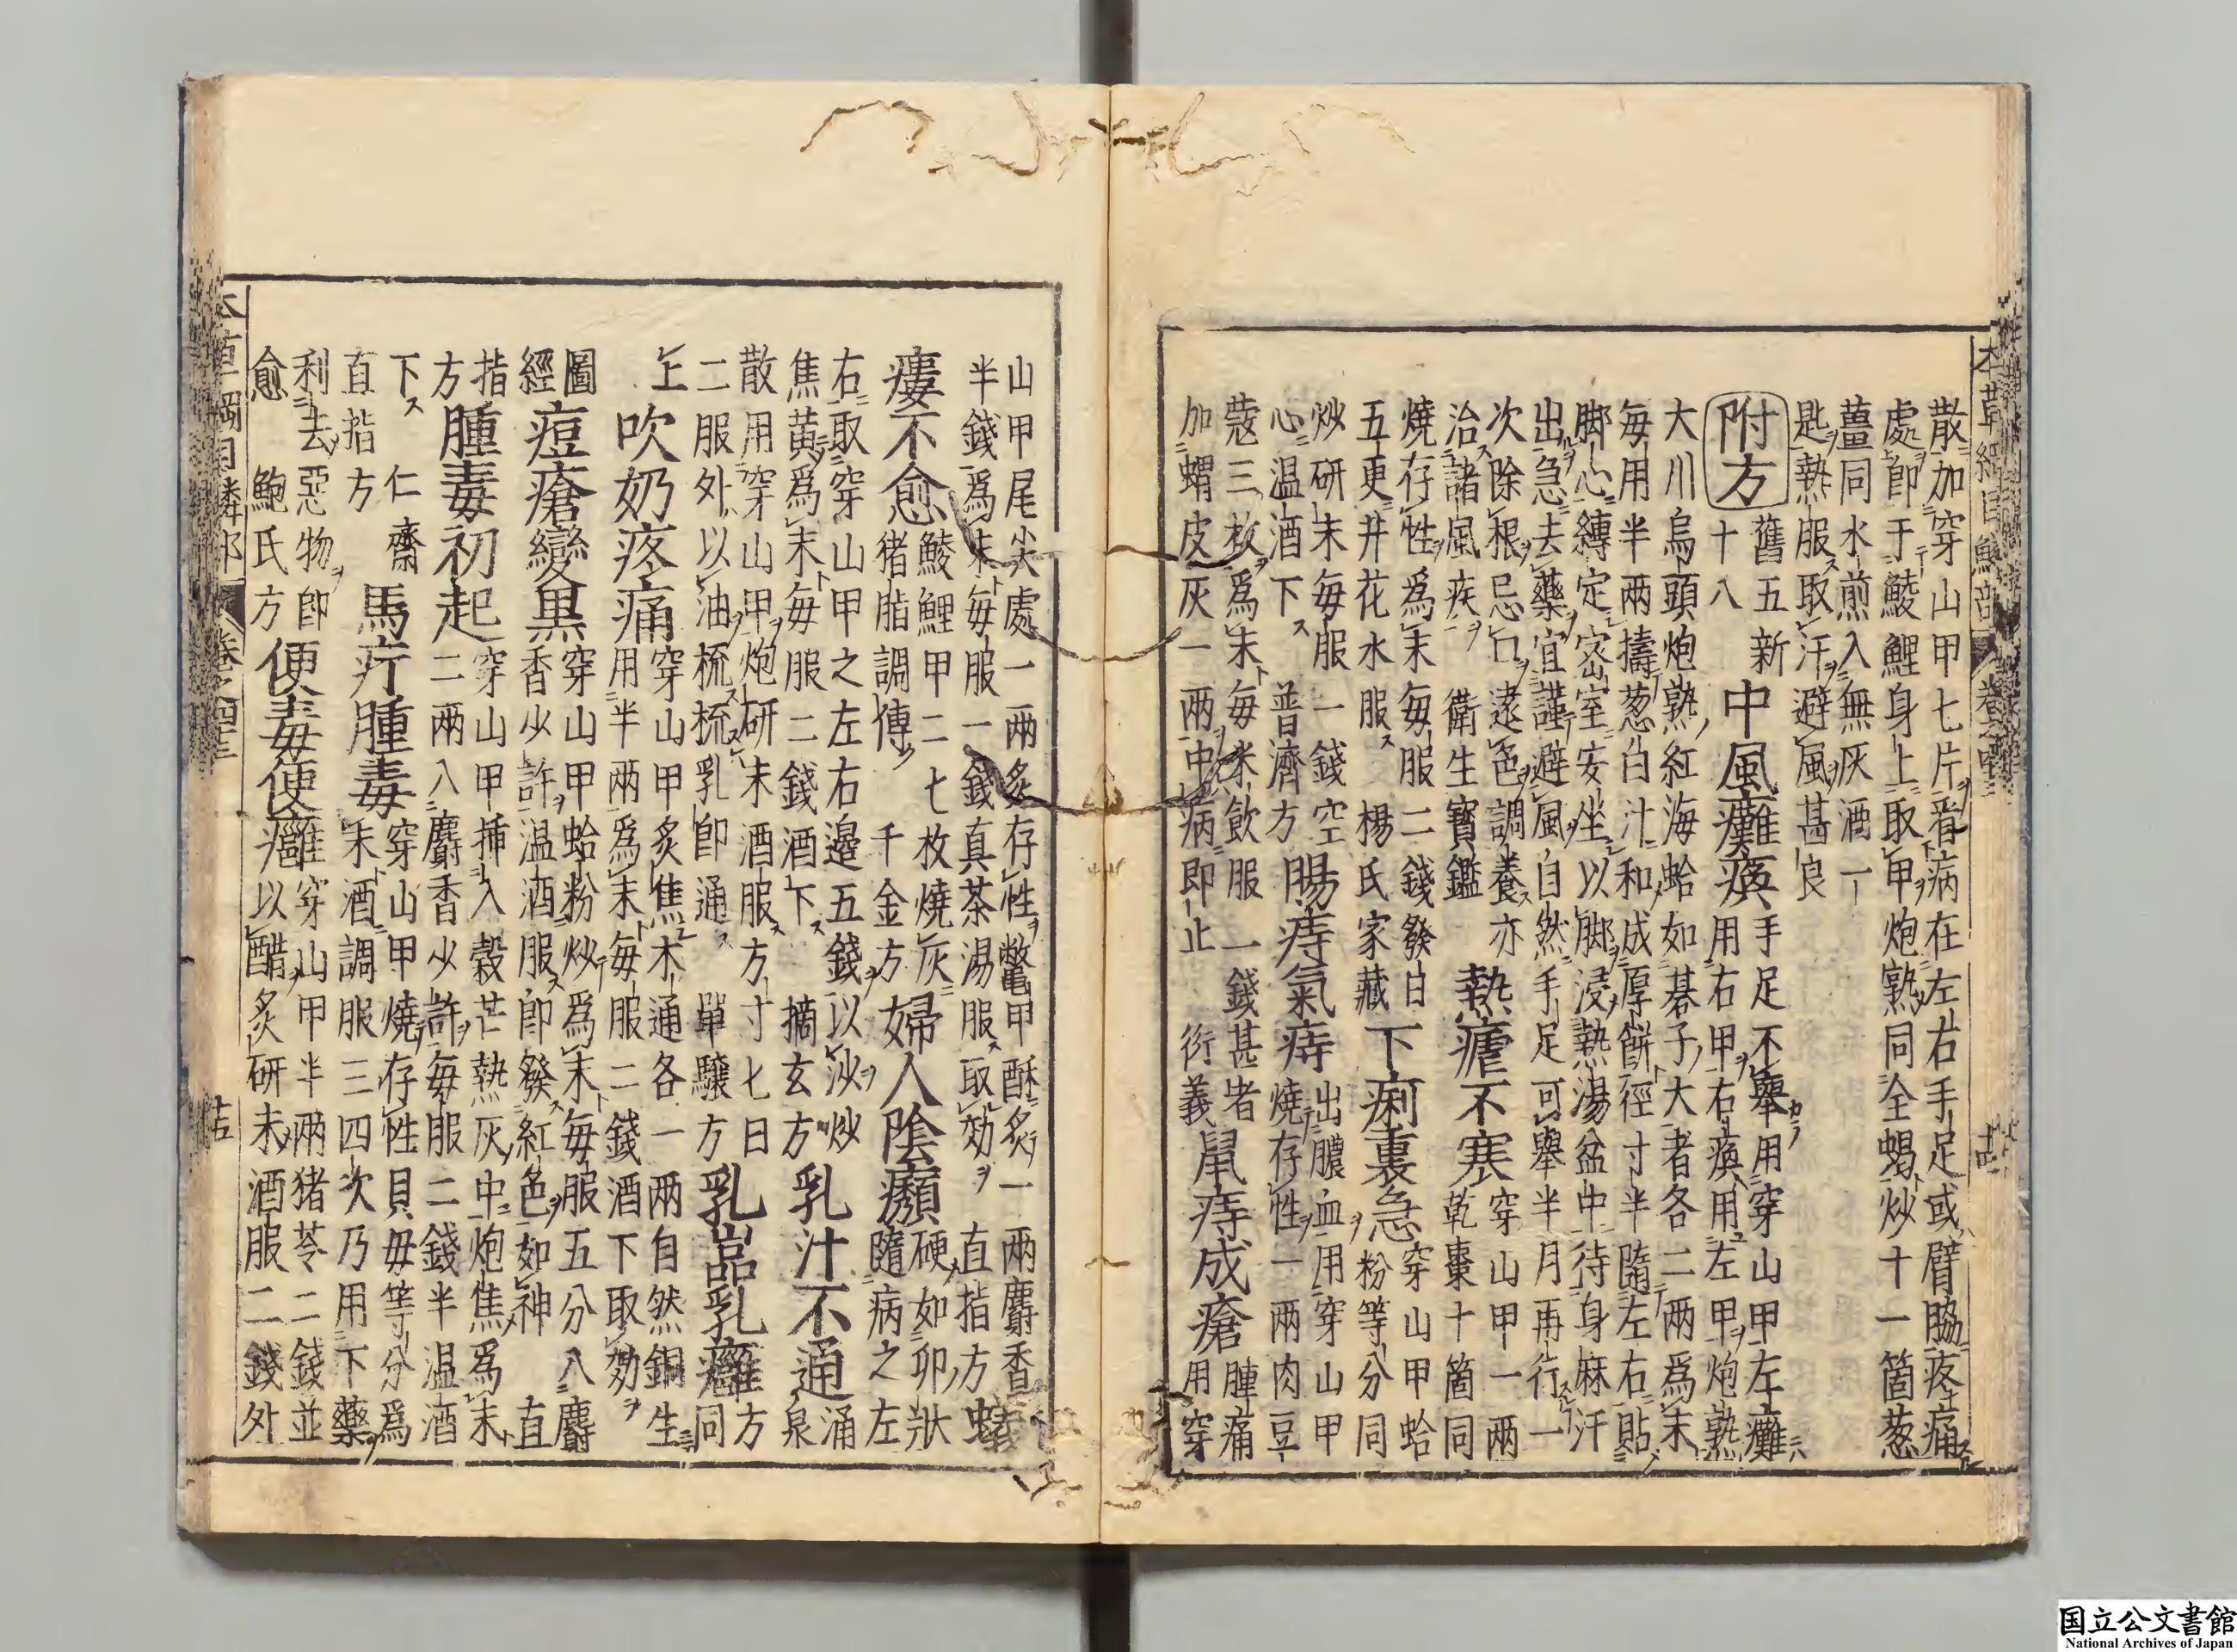 本草綱目鱗部 卷之四十三
散加穿山甲七片看病在左右手足或臂脇疼痛
處即于鯪鯉身上取甲炮熟同全蝎炒十一箇葱
薑同水煎入無灰酒一
匙熱服取汗避風甚良
附方 舊五新十八 中風癱瘓 手足不舉用穿山甲左癱
用右甲右瘓用左甲炮熟
大川烏頭炮熟紅海蛤如碁子大者各二兩爲末
每用半兩擣葱白汁和成厚餅徑寸半隨左右貼
脚心縛定密室安坐以脚浸熱湯盆中待身麻汗
出急去藥宜謹避風自然手足可舉半月再行一
次除根忌口遠色調養亦
治諸風疾 衛生寶鑑 熱瘧不寒 穿山甲一兩
乾棗十箇同
燒存性爲末每服二錢發日
五更井花水服 楊氏家藏 下痢裏急 穿山甲蛤
粉等分同
炒研末每服一錢空
心温酒下 普濟方 腸痔氣痔 出膿血用穿山甲
燒存性一兩肉豆
蔻三枚爲末每米飲服一錢甚者
加蝟皮灰一兩中病即止 衍義 鼠痔成瘡 腫痛
用穿
山甲尾尖處一兩炙存性鼈甲酥炙一兩麝香
半錢爲末每服一錢真茶湯服取効 直指方 蟻
瘻不愈 鯪鯉甲二七枚燒灰
猪脂調傅 千金方 婦人陰㿗 硬如卵狀
隨病之左
右取穿山甲之左右邊五錢以沙炒
焦黃爲末每服二錢酒下 摘玄方 乳汁不通 涌
泉
散用穿山甲炮研末酒服方寸七日
二服外以油梳梳乳即通 單驤方 乳嵒乳癰 方
同
上 吹奶疼痛 穿山甲炙焦木通各一兩自然銅生
用半兩爲末每服二錢酒下取効
圖經 痘瘡變黑 穿山甲蛤粉炒爲末每服五分入麝
香少許温酒服即發紅色如神 直
指方 腫毒初起 穿山甲挿入穀芒熱灰中炮焦爲末
二兩入麝香少許每服二錢半温酒
下 仁齋直指方 馬疔腫毒 穿山甲燒存性貝母等分爲
末酒調服三四次乃用下藥
利去惡物即愈 鮑氏方 便毒便癰 穿山甲半兩猪苓二錢並
以醋炙研末酒服二錢外
本草綱目鱗部 卷之四十三
国立公文書館
National Archives of Japan